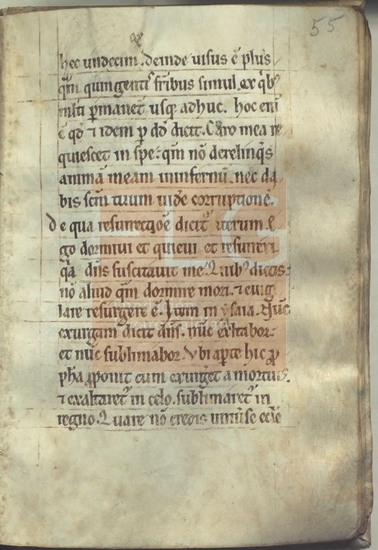 55
hec undecim. deinde visus ē plus
q̄m quingentis fr̄ibus simul. ex q̇b;
multi p̄manet usq; adhuc. hoc eni
ē qd̄ ⁊ idem p dd̄ dicit. Caro mea re
quiescet in spe. qm̄ nō derelinq̄s
animā meam in infernū. nec da
bis scm̄ tuum vidē corruptionē.
De qua resurrectiōe dicit iterum. E
go dormivi et quievi et resurrexi
q̄a dn̄s suscitavit me. Quib; dictis
nō aliud q̄m dormire mori. ⁊ evig
lare resurgere ē. Item in ysaia. Nūc
exurgam dicit dn̄s. nūc exaltabor.
et nūc sublimabor. Ubi aperte hic pro
pha proponit eum exurget a mortuis.
⁊ exaltaret in celo. sublimaret in
regno. Quare nō credis